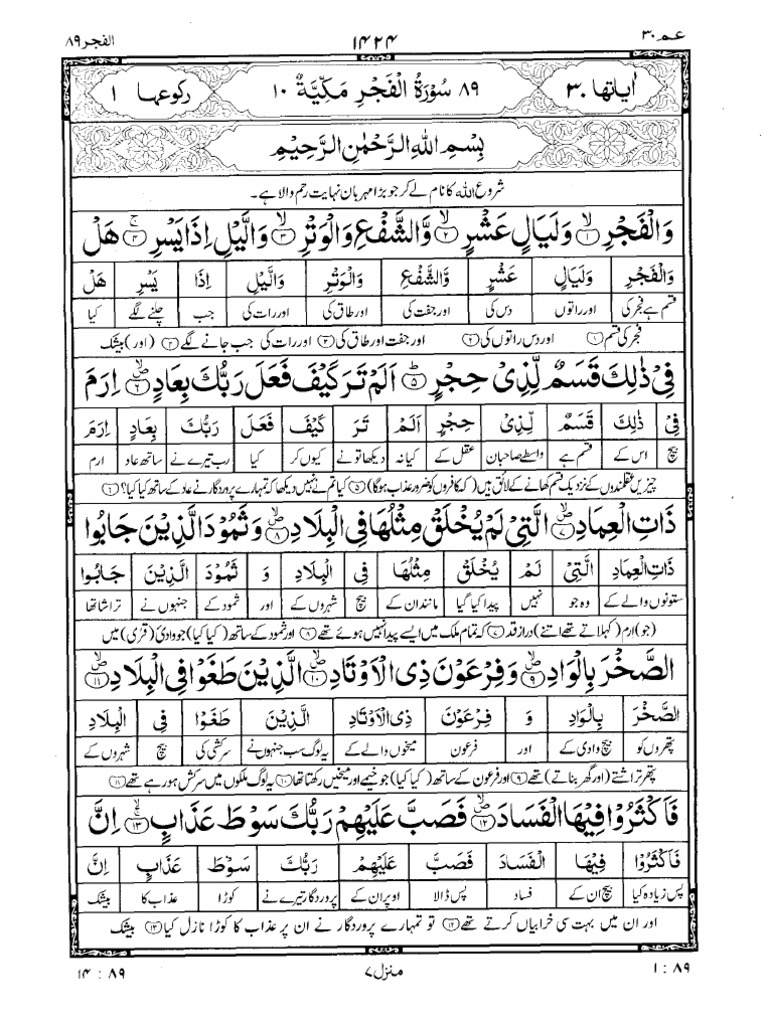 عم ۳۰
۱۴۲۴
الفجر ۸۹
اٰیاتھا ۳۰
۸۹ سُوْرَةُ الْفَجْرِ مَكِّيَّةٌ ۱۰
رکوعھا ۱
بِسْمِ اللهِ الرَّحْمٰنِ الرَّحِيْمِ
شروع اللہ کا نام لے کر جو بڑا مہربان نہایت رحم والا ہے۔
وَالْفَجْرِ ۙ۱ وَلَيَالٍ عَشْرٍ ۙ۲ وَّالشَّفْعِ وَالْوَتْرِ ۙ۳ وَالَّيْلِ اِذَا يَسْرِ ۚ۴ هَلْ
وَالْفَجْرِ وَلَيَالٍ عَشْرٍ وَّالشَّفْعِ وَالْوَتْرِ وَالَّيْلِ اِذَا يَسْرِ هَلْ
قسم ہے فجر کی اور راتوں دس کی اور جفت کی اور طاق کی اور رات کی جب چلنے لگے کیا
فجر کی قسم ۱ اور دس راتوں کی ۲ اور جفت اور طاق کی ۳ اور رات کی جب جانے لگے ۴ (اور) بیشک
فِيْ ذٰلِكَ قَسَمٌ لِّذِيْ حِجْرٍ ۵ اَلَمْ تَرَ كَيْفَ فَعَلَ رَبُّكَ بِعَادٍ ۶ اِرَمَ
فِيْ ذٰلِكَ قَسَمٌ لِّذِيْ حِجْرٍ اَلَمْ تَرَ كَيْفَ فَعَلَ رَبُّكَ بِعَادٍ اِرَمَ
بیچ اس کے قسم ہے واسطے صاحبان عقل کے کیا نہ دیکھا تو نے کیوں کر کیا رب تیرے نے ساتھ عاد ارم
چیزیں عقلمندوں کے نزدیک قسم کھانے کے لائق ہیں (کہ کافروں کو ضرور عذاب ہوگا) ۵ کیا تم نے نہیں دیکھا کہ تمہارے پروردگار نے عاد کے ساتھ کیا کیا؟ ۶
ذَاتِ الْعِمَادِ ۷ الَّتِيْ لَمْ يُخْلَقْ مِثْلُهَا فِي الْبِلَادِ ۸ وَثَمُوْدَ الَّذِيْنَ جَابُوا
ذَاتِ الْعِمَادِ الَّتِيْ لَمْ يُخْلَقْ مِثْلُهَا فِي الْبِلَادِ وَ ثَمُوْدَ الَّذِيْنَ جَابُوا
ستونوں والے کے وہ جو نہیں پیدا کیا گیا مانند ان کے بیچ شہروں کے اور ثمود کے جنہوں نے تراشا تھا
(جو) ارم (کہلاتے تھے اتنے) دراز قد ۷ کہ تمام ملک میں ایسے پیدا نہیں ہوئے تھے ۸ اور ثمود کے ساتھ (کیا کیا) جو وادیٔ (قرٰی) میں
الصَّخْرَ بِالْوَادِ ۹ وَفِرْعَوْنَ ذِي الْاَوْتَادِ ۱۰ الَّذِيْنَ طَغَوْا فِي الْبِلَادِ ۱۱
الصَّخْرَ بِالْوَادِ وَ فِرْعَوْنَ ذِي الْاَوْتَادِ الَّذِيْنَ طَغَوْا فِي الْبِلَادِ
پتھروں کو بیچ وادی کے اور فرعون میخوں والے کے یہ لوگ سب جنہوں نے سرکشی کی بیچ شہروں کے
پتھر تراشتے (اور گھر بناتے) تھے ۹ اور فرعون کے ساتھ (کیا کیا) جو خیمے اور میخیں رکھتا تھا ۱۰ یہ لوگ ملکوں میں سرکش ہو رہے تھے ۱۱
فَاَكْثَرُوْا فِيْهَا الْفَسَادَ ۱۲ فَصَبَّ عَلَيْهِمْ رَبُّكَ سَوْطَ عَذَابٍ ۱۳ اِنَّ
فَاَكْثَرُوْا فِيْهَا الْفَسَادَ فَصَبَّ عَلَيْهِمْ رَبُّكَ سَوْطَ عَذَابٍ اِنَّ
پس زیادہ کیا بیچ ان کے فساد پس ڈالا اوپر ان کے پروردگار تیرے نے کوڑا عذاب کا بیشک
اور ان میں بہت سی خرابیاں کرتے تھے ۱۲ تو تمہارے پروردگار نے ان پر عذاب کا کوڑا نازل کیا ۱۳ بیشک
۸۹ : ۱
منزل ۷
۸۹ : ۱۴